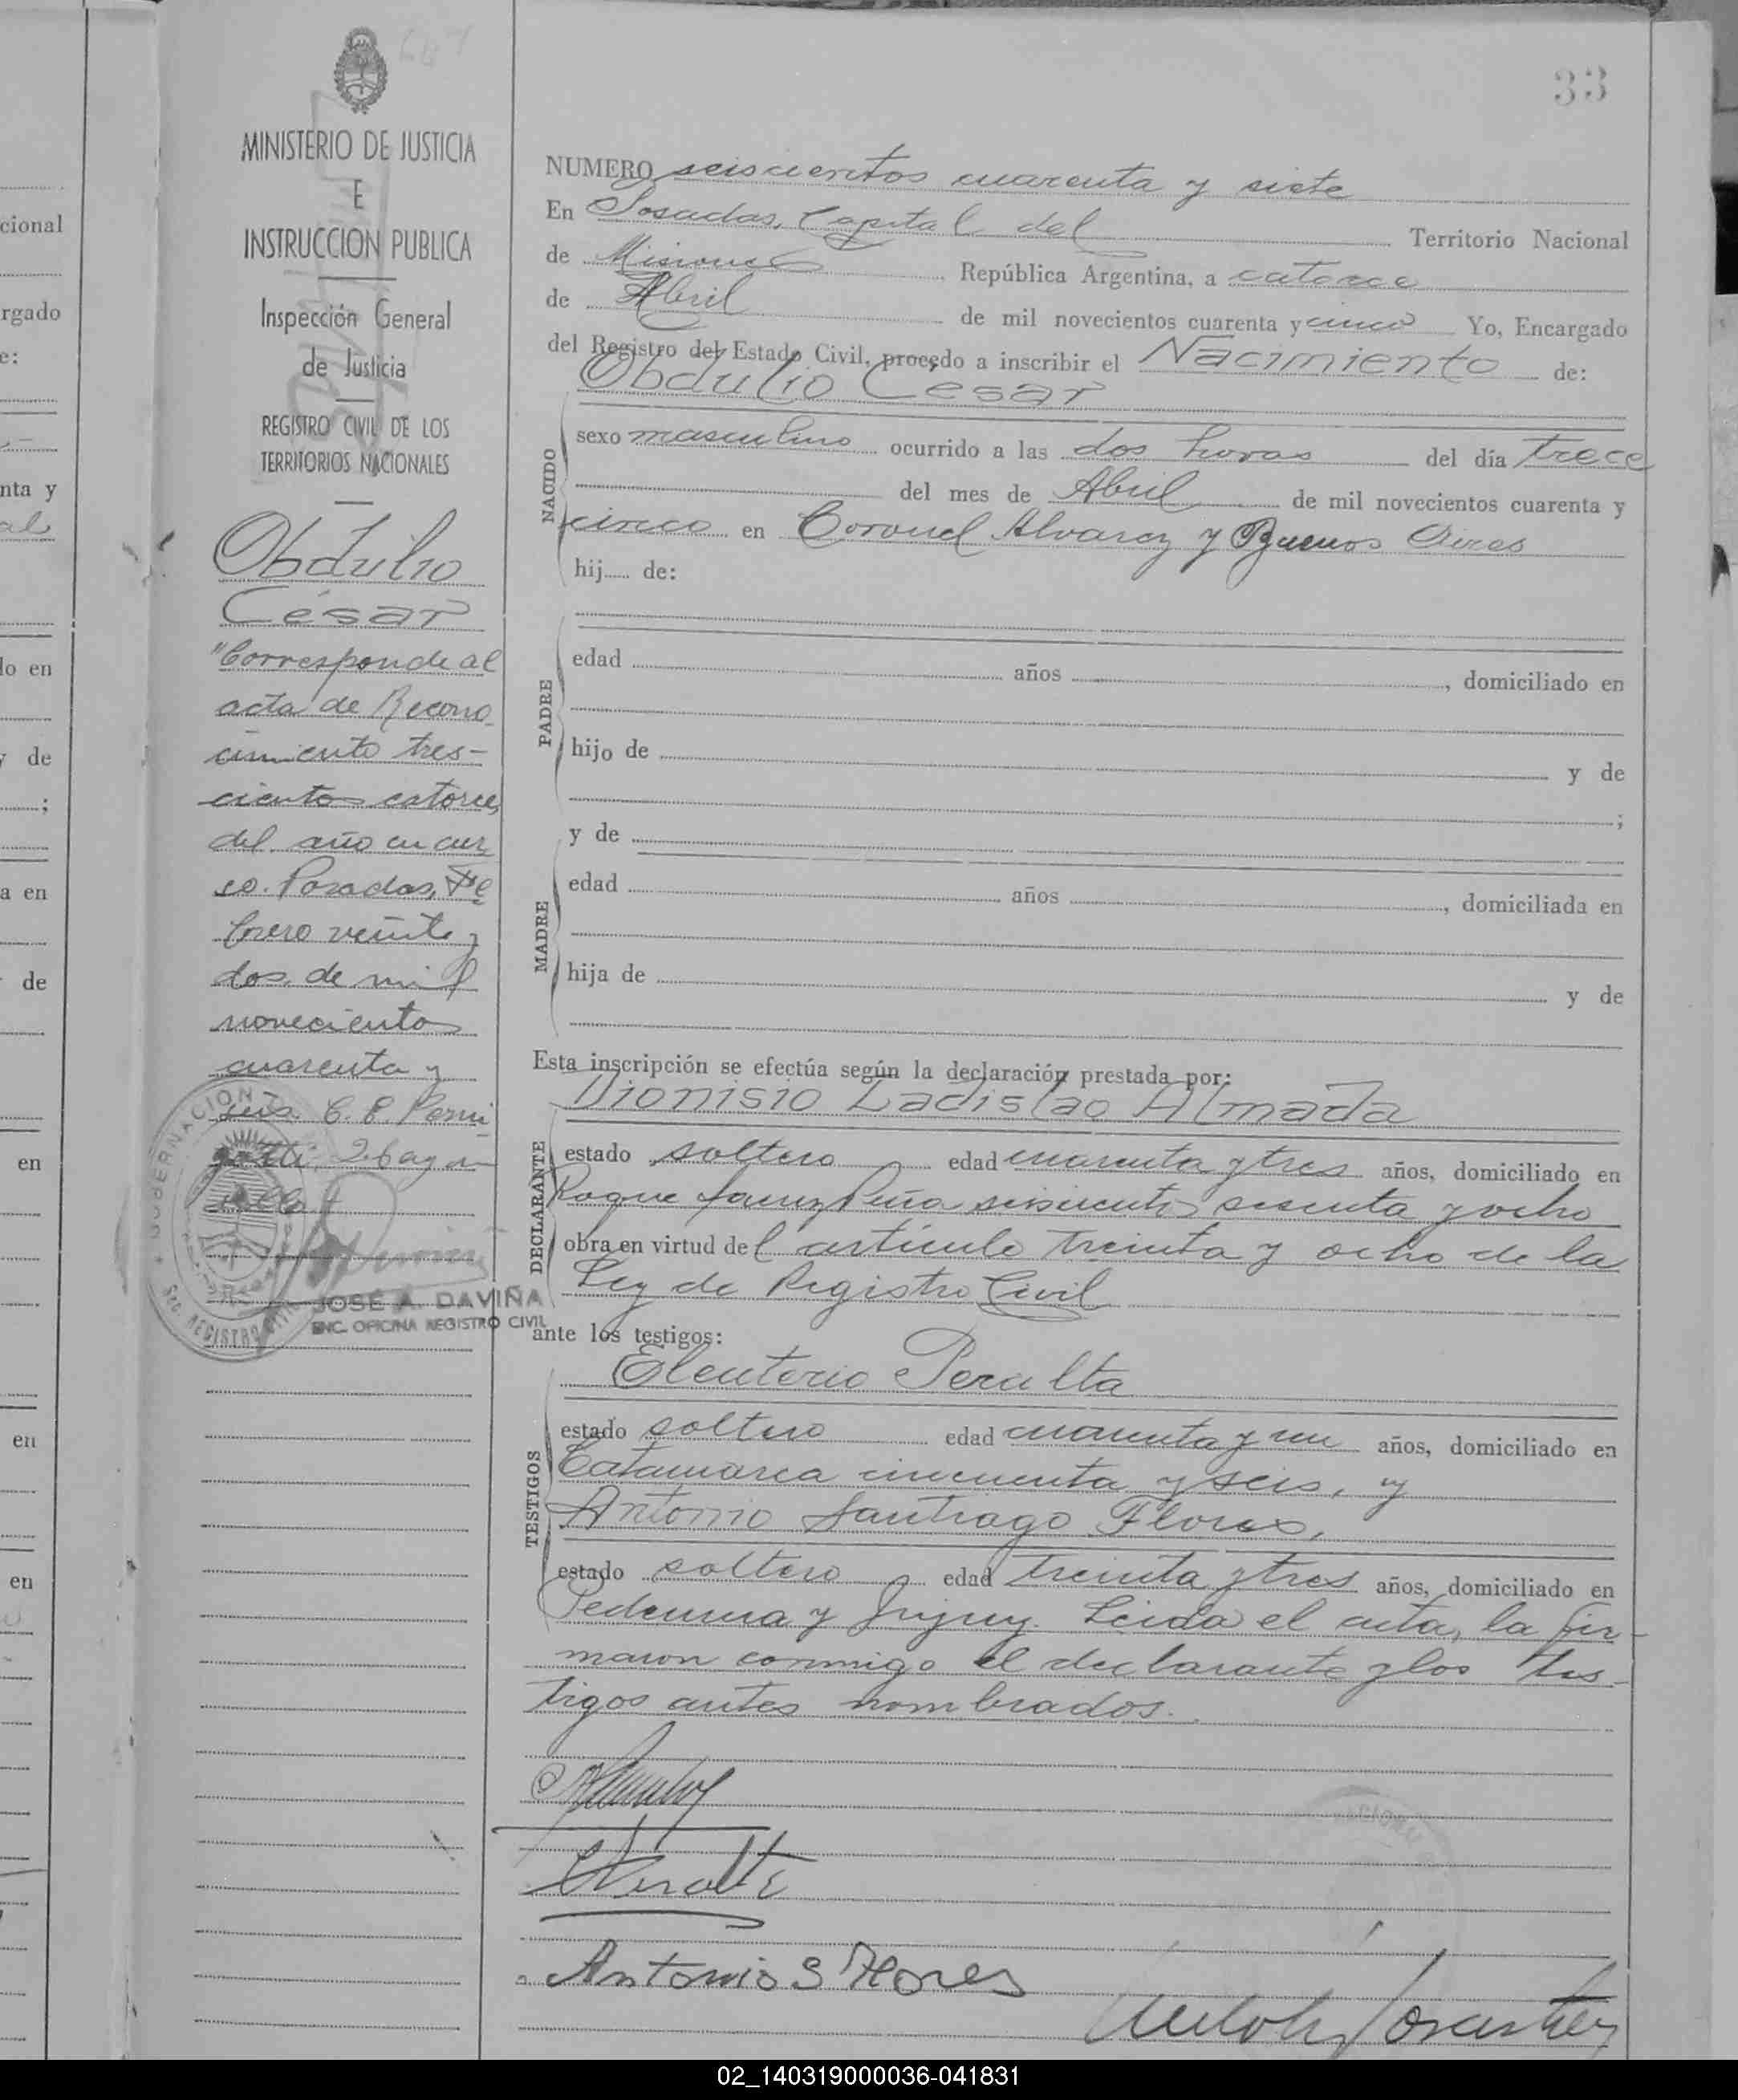 33
MINISTERIO DE JUSTICIA
E
INSTRUCCION PUBLICA
Inspección General
de Justicia
REGISTRO CIVIL DE LOS
TERRITORIOS NACIONALES
Obdulio
César
"Corresponde al
acta de Recono
cimiento tres-
cientos catorce,
del año en cur
so. Posadas, Fe
brero veinte y
dos de mil
novecientos
cuarenta y
JOSÉ A. DAVIÑA
ENC. OFICINA REGISTRO CIVIL
NUMERO seiscientos cuarenta y siete
En Posadas, Capital del Territorio Nacional
de Misiones República Argentina, a catorce
de Abril de mil novecientos cuarenta y cinco Yo, Encargado
del Registro del Estado Civil, procedo a inscribir el Nacimiento de:
Obdulio César
NACIDO
sexo masculino ocurrido a las dos horas del día trece
del mes de Abril de mil novecientos cuarenta y
cinco en Coronel Alvarez y Buenos Aires
hij de:
PADRE
edad años , domiciliado en
hijo de y de
;
y de
MADRE
edad años , domiciliada en
hija de y de
Esta inscripción se efectúa según la declaración prestada por:
Dionisio Ladislao Almada
DECLARANTE
estado soltero edad cuarenta y tres años, domiciliado en
Roque Saenz Peña seiscientos sesenta y ocho
obra en virtud del artículo treinta y ocho de la
Ley de Registro Civil
ante los testigos:
Eleuterio Peralta
TESTIGOS
estado soltero edad cuarenta y un años, domiciliado en
Catamarca cincuenta y seis, y
Antonio Santiago Flores,
estado soltero edad treinta y tres años, domiciliado en
Pedernera y Jujuy. Leida el acta, la fir-
maron conmigo el declarante y los tes-
tigos antes nombrados.
Antonio S Flores
02_140319000036-041831